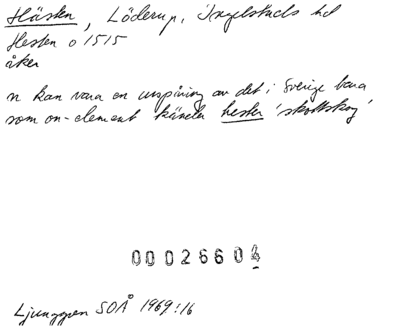 Hästen, Löderup, Ingelstads hd
Hesten o 1515
åker
n kan vara en urspåring av det i Sverige bara
som on-element kända hester 'skottskog'
00026604
Ljunggren SOÅ 1969:16